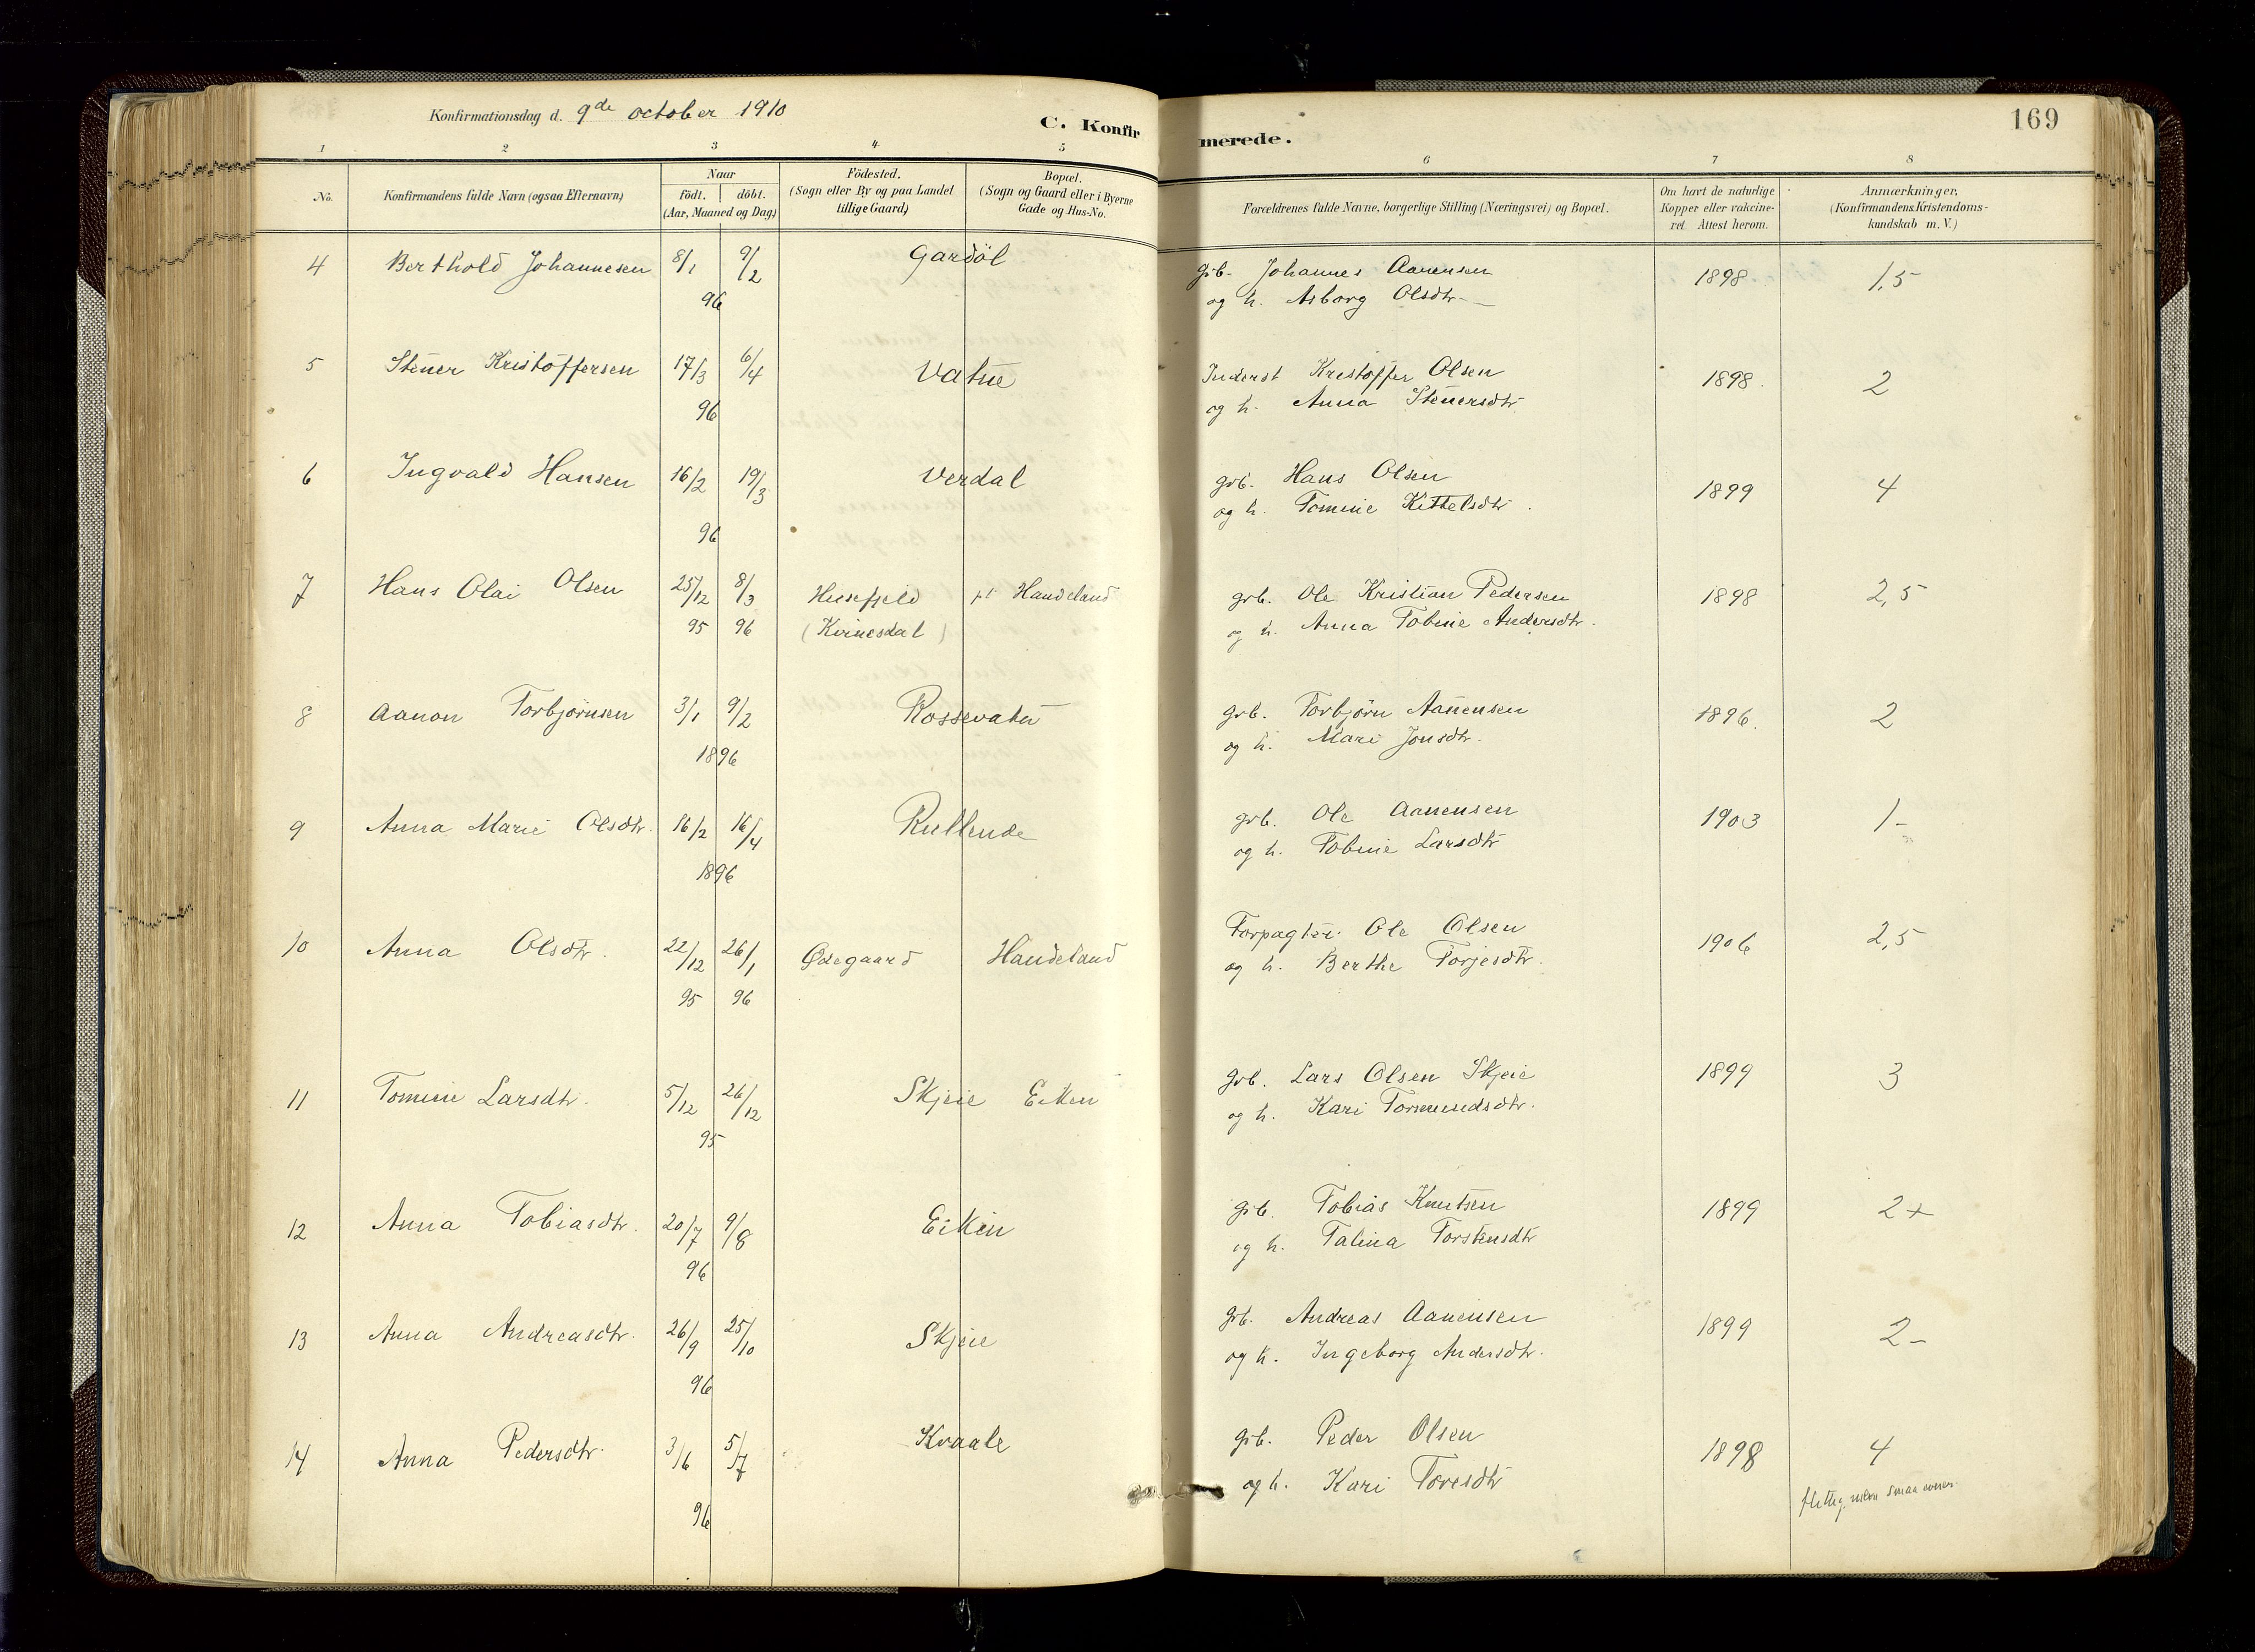 Konfirmationsdag d. 9de october 1910
C. Konfir
merede.
169
1 2 3 4 5 6 7 8
No.
Konfirmandens fulde Navn (ogsaa Efternavn)
Naar
födt. döbt.
(Aar, Maaned og Dag)
Födested.
(Sogn eller By og paa Landet
tillige Gaard)
Bopæl.
(Sogn og Gaard eller i Byerne
Gade og Hus-No.
Forældrenes fulde Navne, borgerlige Stilling (Næringsvei) og Bopæl.
Om havt de naturlige
Kopper eller vakcine-
ret. Attest herom.
Anmærkninger,
(Konfirmandens Kristendoms-
kundskab m. V.)
4 Berthold Johannesen 8/1 9/2 Gardöl grb. Johannes Aanensen 1898 1,5
96 og h. Asborg Olsdtr.
5 Stener Kristoffersen 17/3 6/4 Vatne Inderst Kristoffer Olsen 1898. 2
96 og h. Anna Stenersdtr.
6 Ingvald Hansen 16/2 19/3 Verdal grb. Hans Olsen 1899 4
96 og h. Tomine Kittelsdtr.
7 Hans Olai Olsen 25/12 8/3 Husefjeld pt Handeland grb. Ole Kristian Pedersen 1898 2,5
95 96 (Kvinesdal) og h. Anna Tobine Andersdtr.
8 Aanon Torbjørnsen 3/1 9/2 Rossevatn grb. Torbjörn Aanensen 1896. 2
1896 og h. Mari Jonsdtr.
9 Anna Marie Olsdtr. 16/2 16/4 Rullende grb. Ole Aanensen 1903 1-
1896 og h. Tobine Larsdtr
10 Anna Olsdtr. 22/12 26/1 Ødegaard Handeland Forpagter Ole Olsen 1906 2,5
95 96 og h. Berthe Torjesdtr.
11 Tomine Larsdtr. 5/12 26/12 Skjeie Eiken grb. Lars Olsen Skjeie 1899 3
95 og h. Kari Tormundsdtr.
12 Anna Tobiasdtr. 20/7 9/8 Eiken grb. Tobias Knutsen 1899 2+
96 og h. Talina Torstensdtr
13 Anna Andreasdtr. 26/9 25/10 Skjeie grb. Andreas Aanensen 1899 2-
96 og h. Ingeborg Andersdtr.
14 Anna Pedersdtr. 3/6 5/7 Kvaale grb. Peder Olsen 1898 4
96 og h. Kari Toresdtr flittig, men smaa evner.